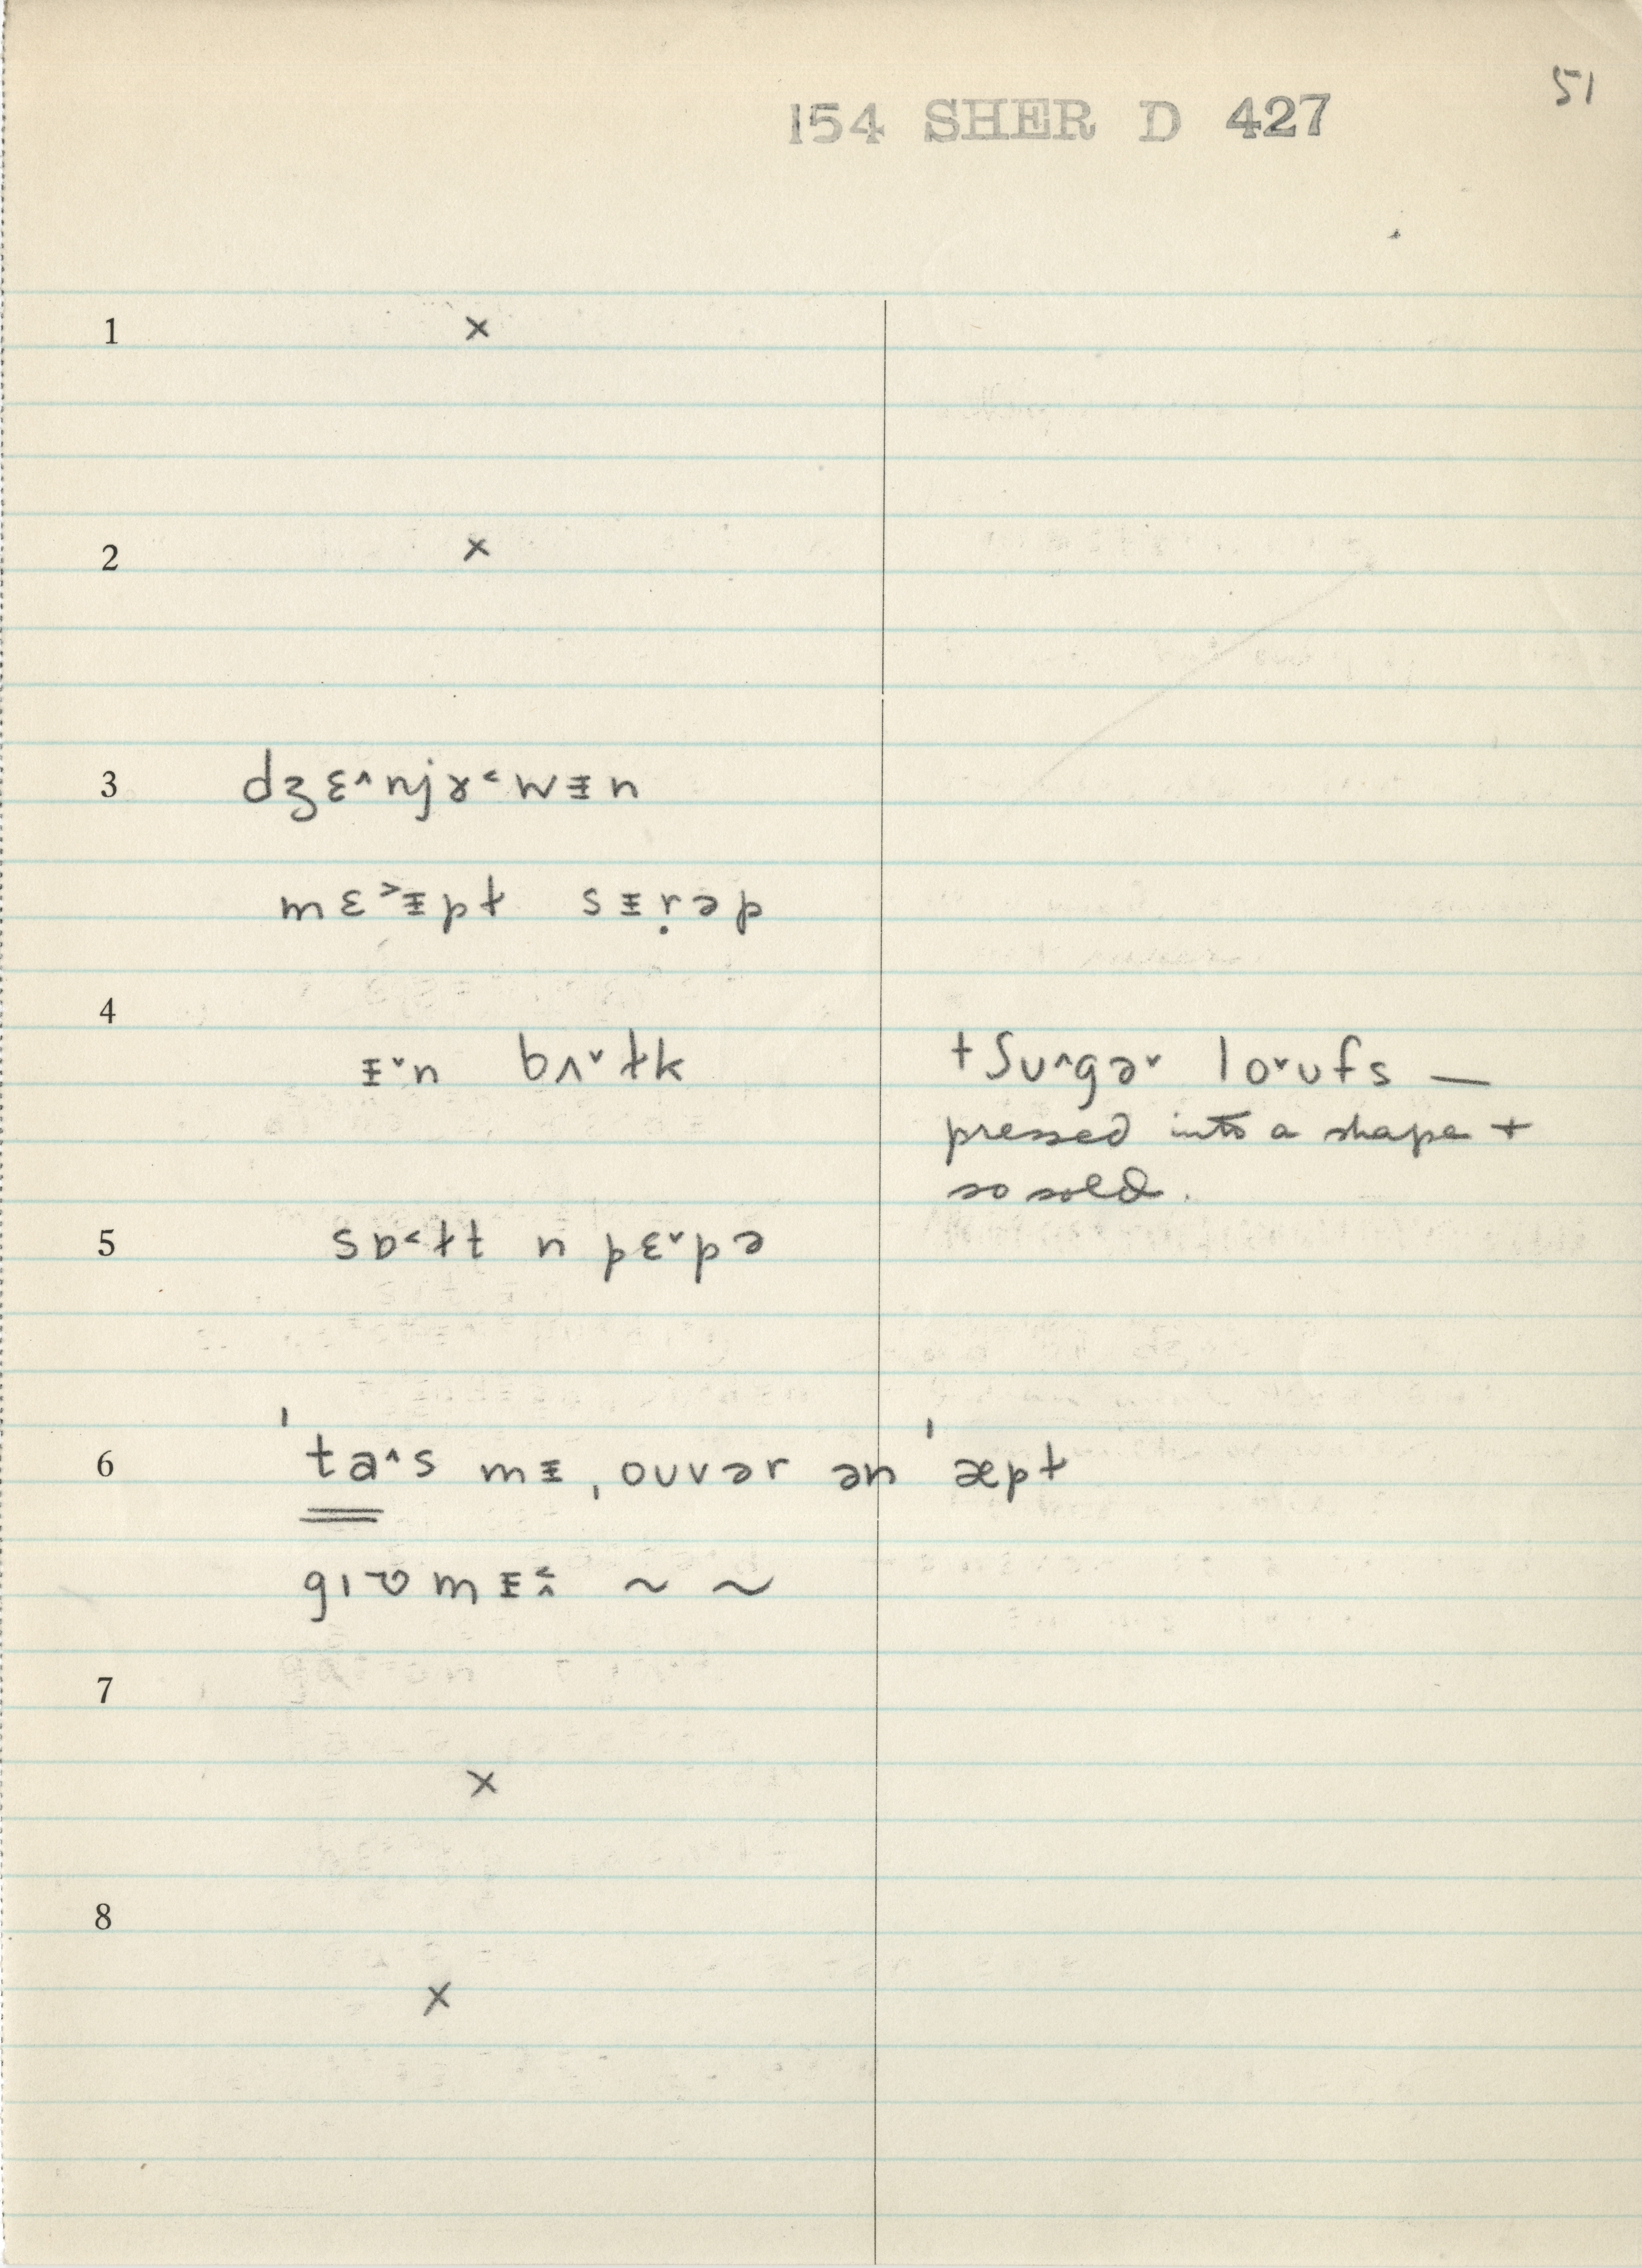 51
154 SHER D 427
1 ×
2 ×
3 dʒɛ˄njɤ˂wᵻn
mɛ˃ᵻpɫ sᵻṛəp
4
ᵻ˅n bʌ˅ɫk
tʃʊ˄gə˅ lo˅ʊfs —
pressed into a shape +
so sold.
5 sɒ˂ɫt n pɛ˅pə
6 ˈta˄s mᵻ ˌoʊvər ən ˈæpɫ
gɪʋmᵻ˂˄ ~ ~
7
×
8
×